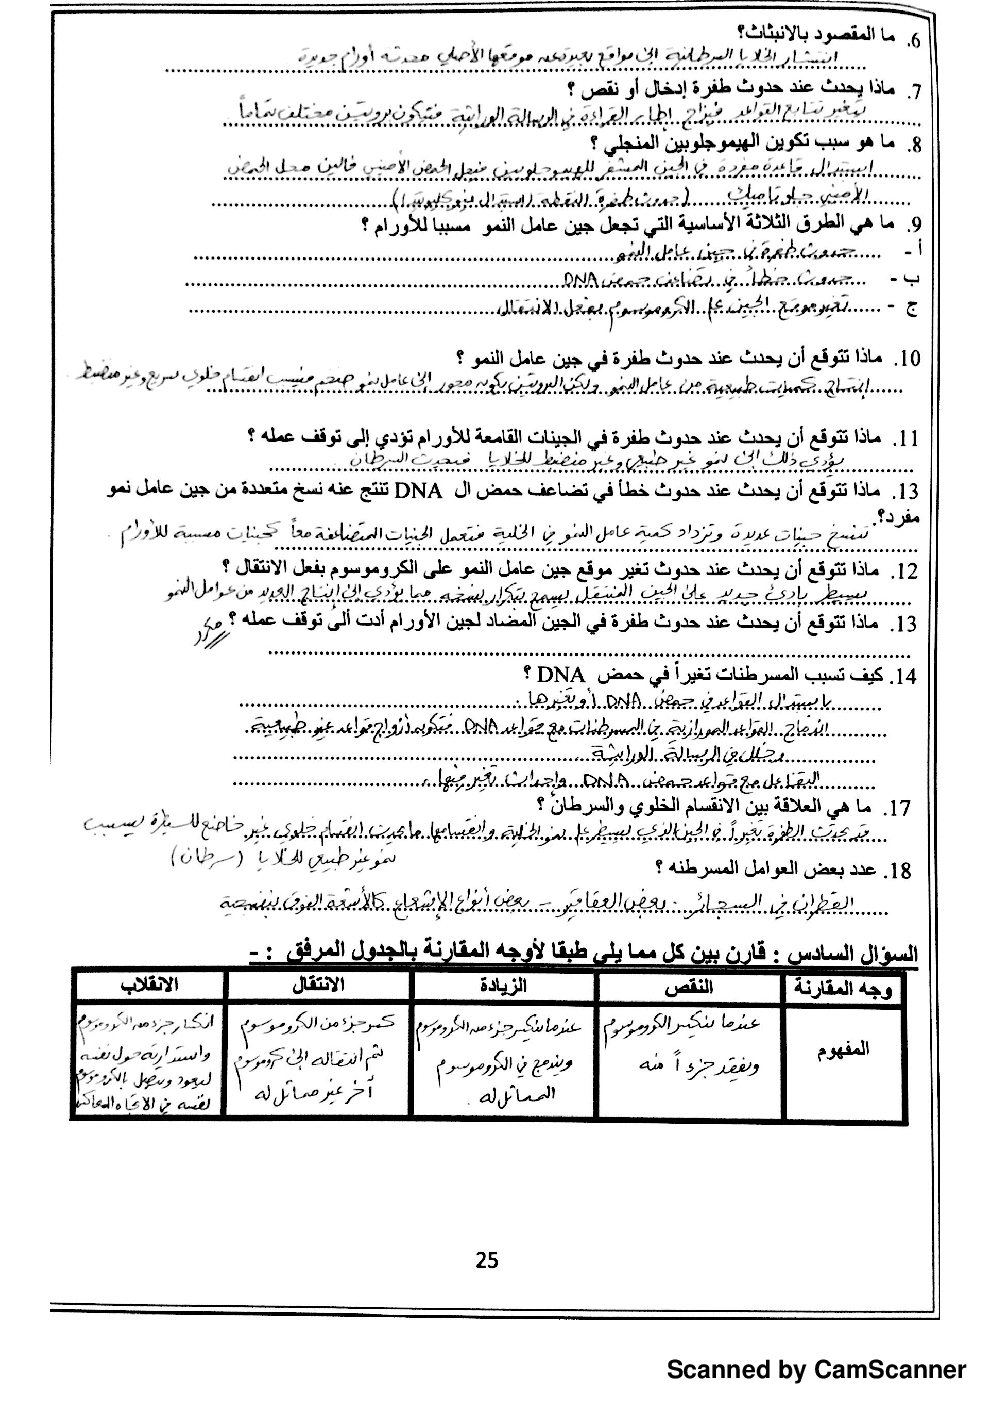 6. ما المقصود بالانبثاث؟
انتشار الخلايا السرطانية الى مواقع بعيدة عن موقعها الأصلي محدثه أورام جديدة
7. ماذا يحدث عند حدوث طفرة إدخال أو نقص ؟
تتغير تتابع القواعد فيزاح إطار القراءة في الرسالة الوراثية فتتكون بروتين مختلف تماماً
8. ما هو سبب تكوين الهيموجلوبين المنجلي ؟
استبدال قاعدة مفردة في الجين المشفر للهيموجلوبين فيحل الحمض الأميني فالين محل الحمض
الأميني جلوتاميك (حدوث طفرة النقطة (استبدال نيوكليوتيد)
9. ما هي الطرق الثلاثة الأساسية التي تجعل جين عامل النمو مسببا للأورام ؟
أ - حدوث طفرة في جين عامل النمو
ب - حدوث خطأ في تضاعف حمض DNA
ج - تغير موقع الجين على الكروموسوم بفعل الانتقال
10. ماذا تتوقع أن يحدث عند حدوث طفرة في جين عامل النمو ؟
إنتاج كميات طبيعية من عامل النمو ولكن البروتين يكون محور الى عامل نمو ضخم فيسبب انقسام خلوي سريع وغير منضبط
11. ماذا تتوقع أن يحدث عند حدوث طفرة في الجينات القامعة للأورام تؤدي إلى توقف عمله ؟
يؤدي ذلك الى نمو غير طبيعي وغير منضبط للخلايا فيحدث السرطان
13. ماذا تتوقع أن يحدث عند حدوث خطأ في تضاعف حمض ال DNA تنتج عنه نسخ متعددة من جين عامل نمو
مفرد؟
تنسخ جينات عديدة وتزداد كمية عامل النمو في الخلية فتعمل الجينات المتضاعفة معاً كجينات مسببة للأورام .
12. ماذا تتوقع أن يحدث عند حدوث تغير موقع جين عامل النمو على الكروموسوم بفعل الانتقال ؟
يسيطر بادئ جديد على الجين المنتقل يسمح بتكرار نسخه مما يؤدي الى إنتاج العديد من عوامل النمو
13. ماذا تتوقع أن يحدث عند حدوث طفرة في الجين المضاد لجين الأورام أدت ألى توقف عمله ؟ مكرر
14. كيف تسبب المسرطنات تغيراً في حمض DNA ؟
باستبدال القواعد في حمض DNA أو تغيرها .
اندماج القواعد الموازية في المسرطنات مع قواعد DNA فتكون أزواج قواعد غير طبيعية
وخلل في الرسالة الوراثية
التفاعل مع قواعد حمض DNA وإحداث تغير فيها .
17. ما هي العلاقة بين الانقسام الخلوي والسرطان ؟
قد يحدث الطفرة تغيراً في الجين الذي يسيطر على نمو الخلية وانقسامها ما يحدث انقسام خلوي غير خاضع للسيطرة يسبب
نمو غير طبيعي للخلايا (سرطان)
18. عدد بعض العوامل المسرطنه ؟
القطران في السجائر - بعض العقاقير - بعض أنواع الإشعاع كالأشعة الفوق بنفسجية
السؤال السادس : قارن بين كل مما يلي طبقا لأوجه المقارنة بالجدول المرفق : -
وجه المقارنة النقص الزيادة الانتقال الانقلاب
المفهوم
عندما ينكسر الكروموسوم
ويفقد جزءاً منه
عندما ينكسر جزء من الكروموسوم
ويندمج في الكروموسوم
المماثل له .
كسر جزء من الكروموسوم
ثم انتقاله الى كروموسوم
آخر غير مماثل له
انكسار جزء من الكروموسوم
واستدارته حول نفسه
ليعود ويتصل بالكروموسوم
نفسه في الاتجاه المعاكس
25
Scanned by CamScanner